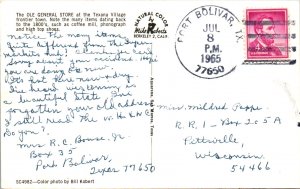 The OLE GENERAL STORE at the Texang Village
frontier town. Note the many items dating back
to the 1800's, such as coffee mill, phonograph
and high top shoes.
NATURAL COLOR
by
Mike Roberts
BERKELEY 2, CALIF.
PORT BOLIVAR, TX.
JUL
8
P.M.
1965
77650
Notice so many items
Quite different from the super
Said
about your accident. Hope
you are doing O.K. now.
hot here now days.
I've heard wyoming is
a beautiful State. Our
your old address
I still read the W.H.&N.S
Do you?
Mrs R.C. Bouse, Jr.
Box 35
Port Bolivar,
Texas 77650
Miss Mildred Pepper
R.R. 1 - Box 205A
Pottsville,
Wisconsin.
54466
SC4982—Color photo by Bill Robert